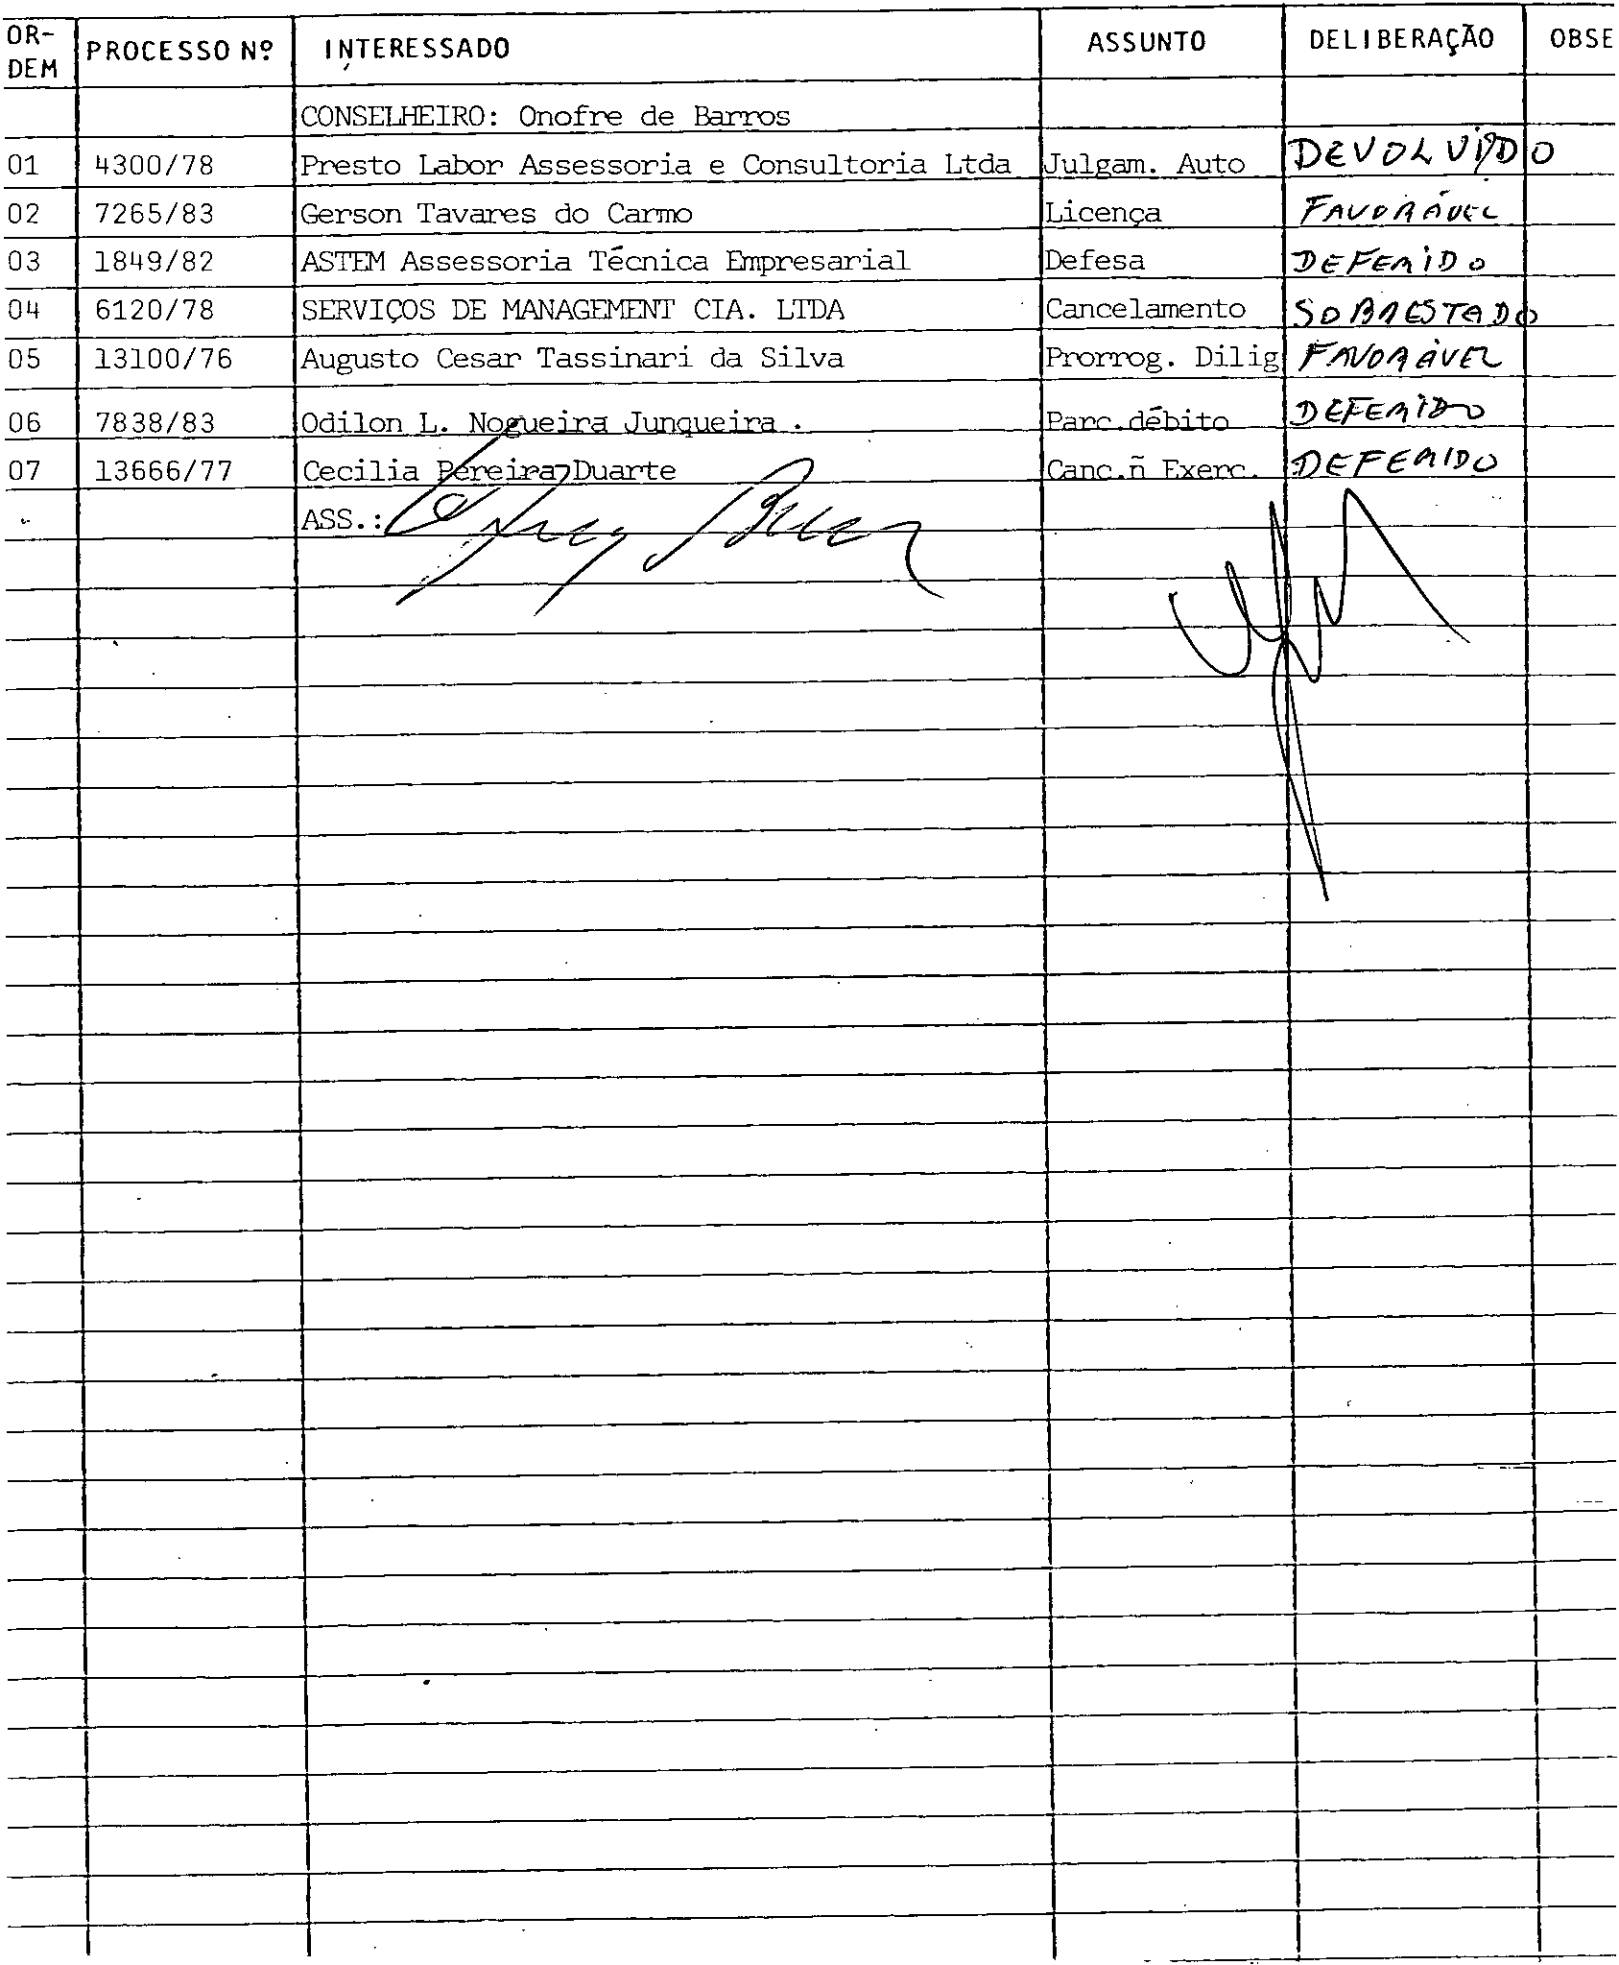 OR-DEM PROCESSO Nº INTERESSADO ASSUNTO DELIBERAÇÃO OBSE
CONSELHEIRO: Onofre de Barros
01 4300/78 Presto Labor Assessoria e Consultoria Ltda Julgam. Auto DEVOLVIDO
02 7265/83 Gerson Tavares do Carmo Licença FAVORÁVEL
03 1849/82 ASTEM Assessoria Técnica Empresarial Defesa DEFERIDO
04 6120/78 SERVIÇOS DE MANAGEMENT CIA. LTDA Cancelamento SOBRESTADO
05 13100/76 Augusto Cesar Tassinari da Silva Prorrog. Dilig FAVORÁVEL
06 7838/83 Odilon L. Nogueira Junqueira . Parc.débito DEFERIDO
07 13666/77 Cecilia Pereira Duarte Canc.ñ Exerc. DEFERIDO
ASS.: